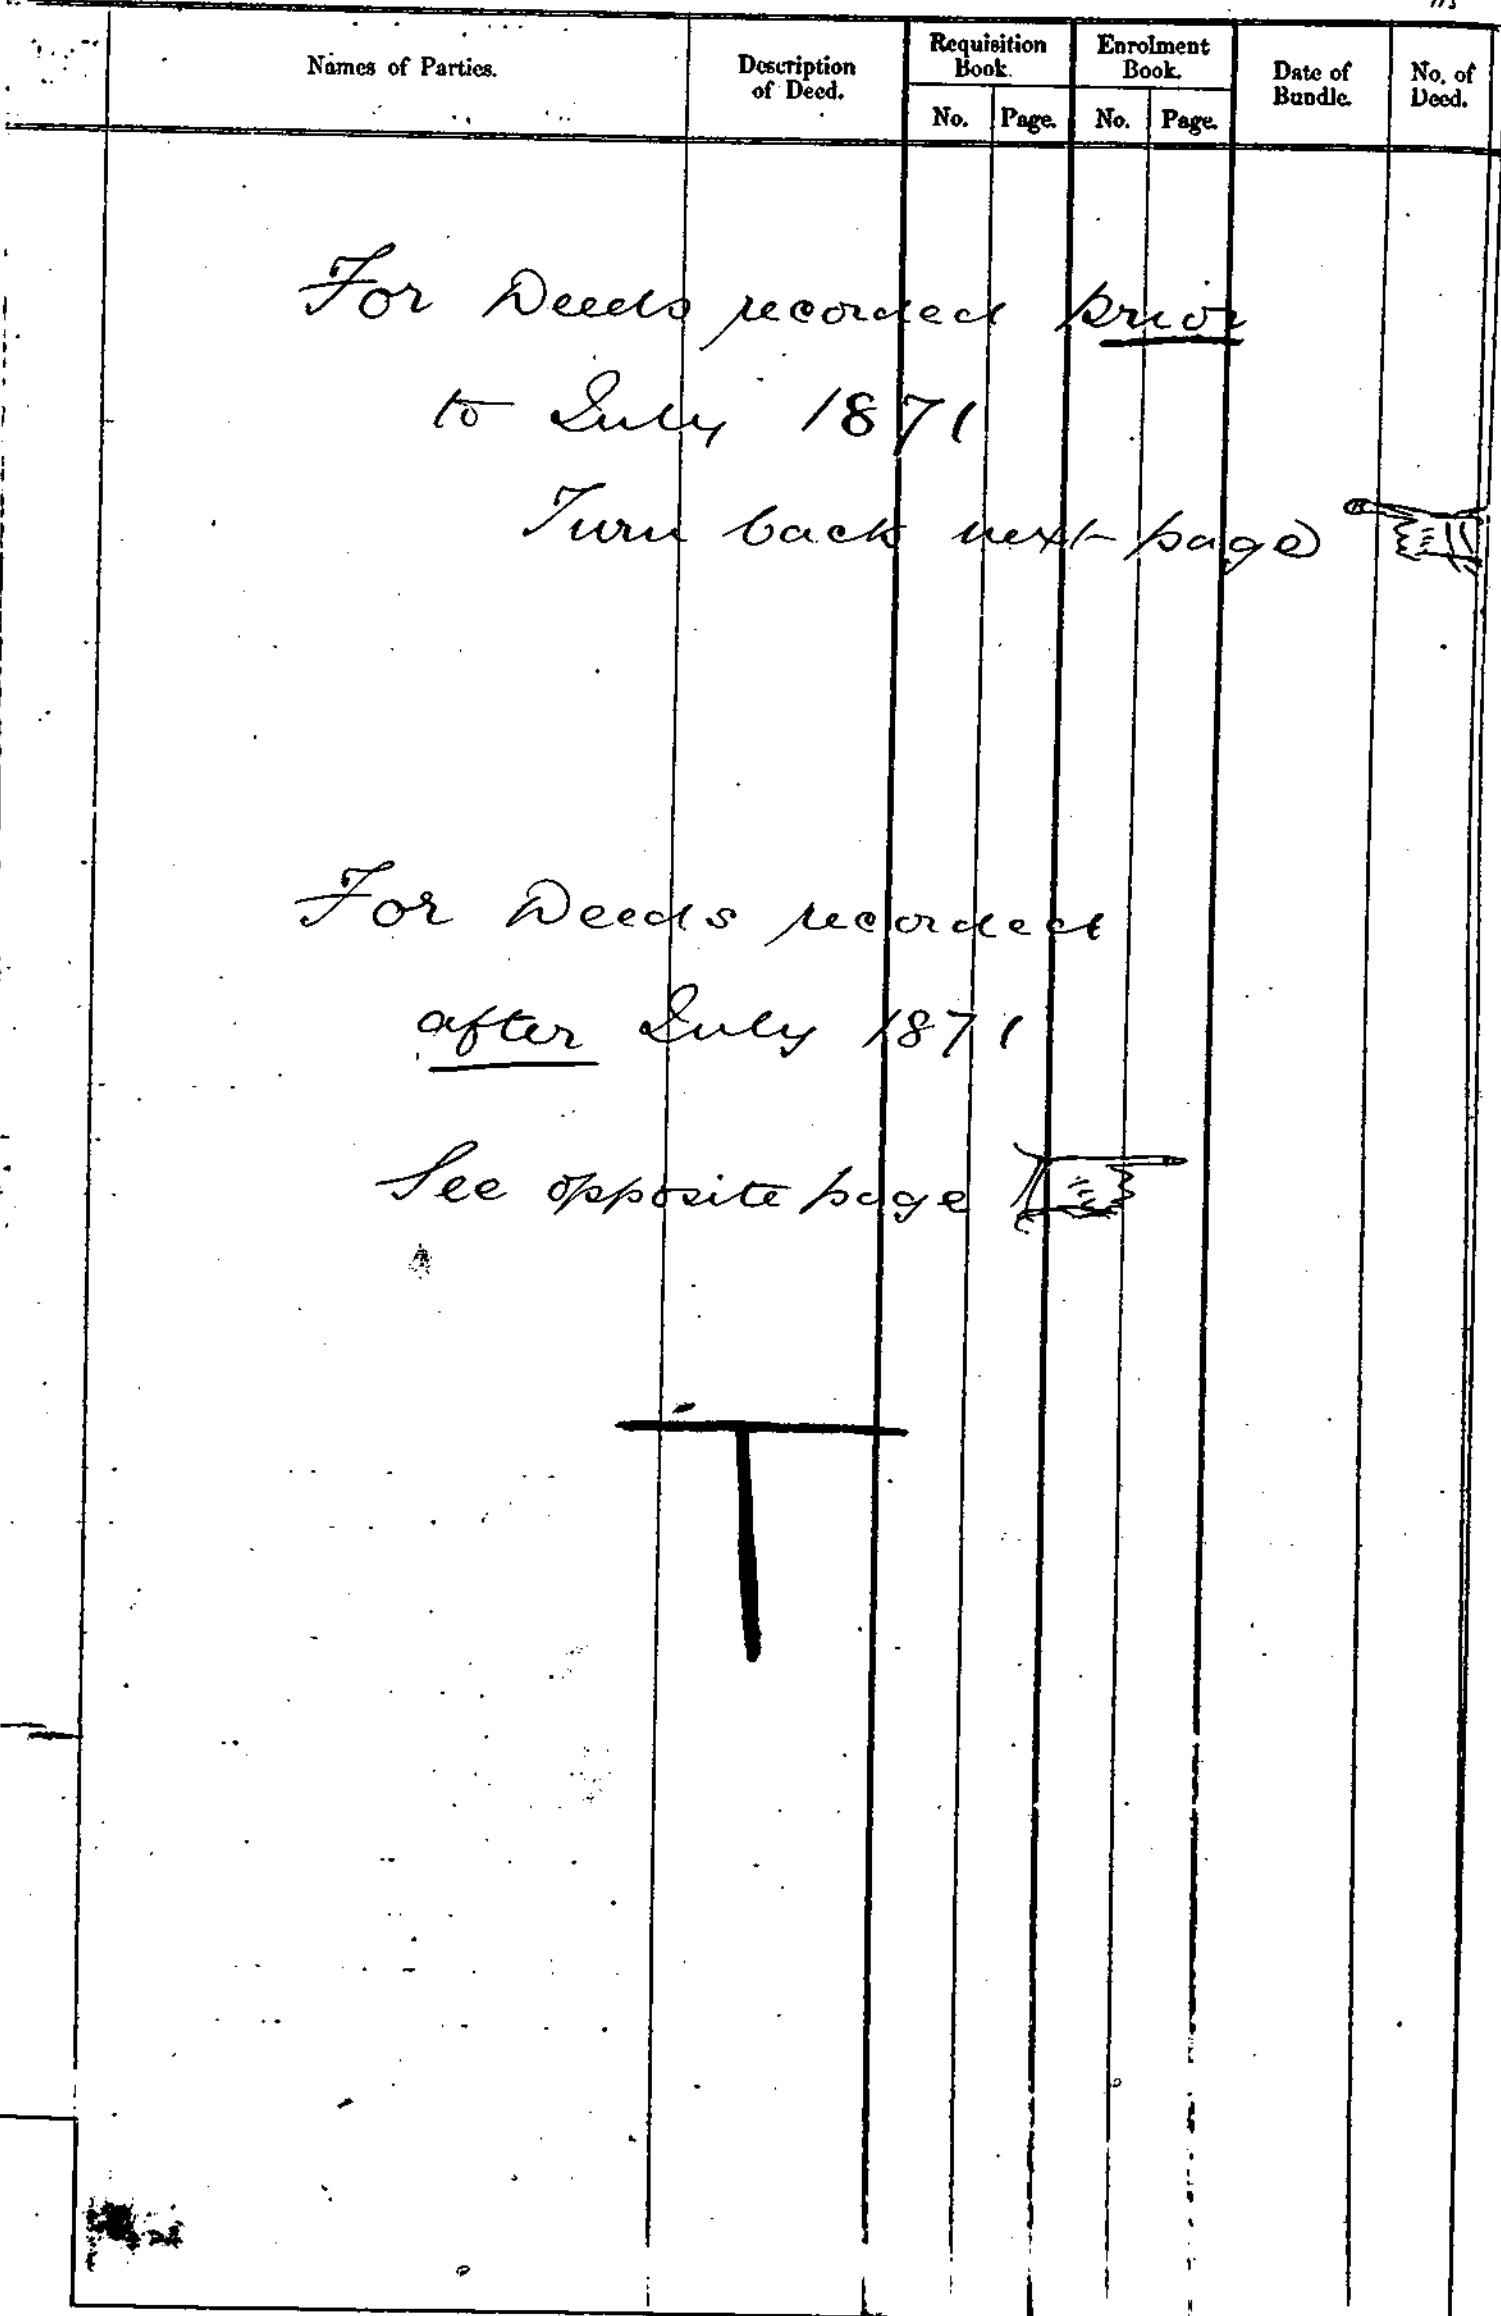 Names of Parties.
Description
of Deed.
Requisition
Book.
No.
Page.
Enrolment
Book.
No.
Page.
Date of
Bundle.
No. of
Deed.
For Deeds recorded prior
to July 1871
Turn back next page
For Deeds recorded
after July 1871
See opposite page
T